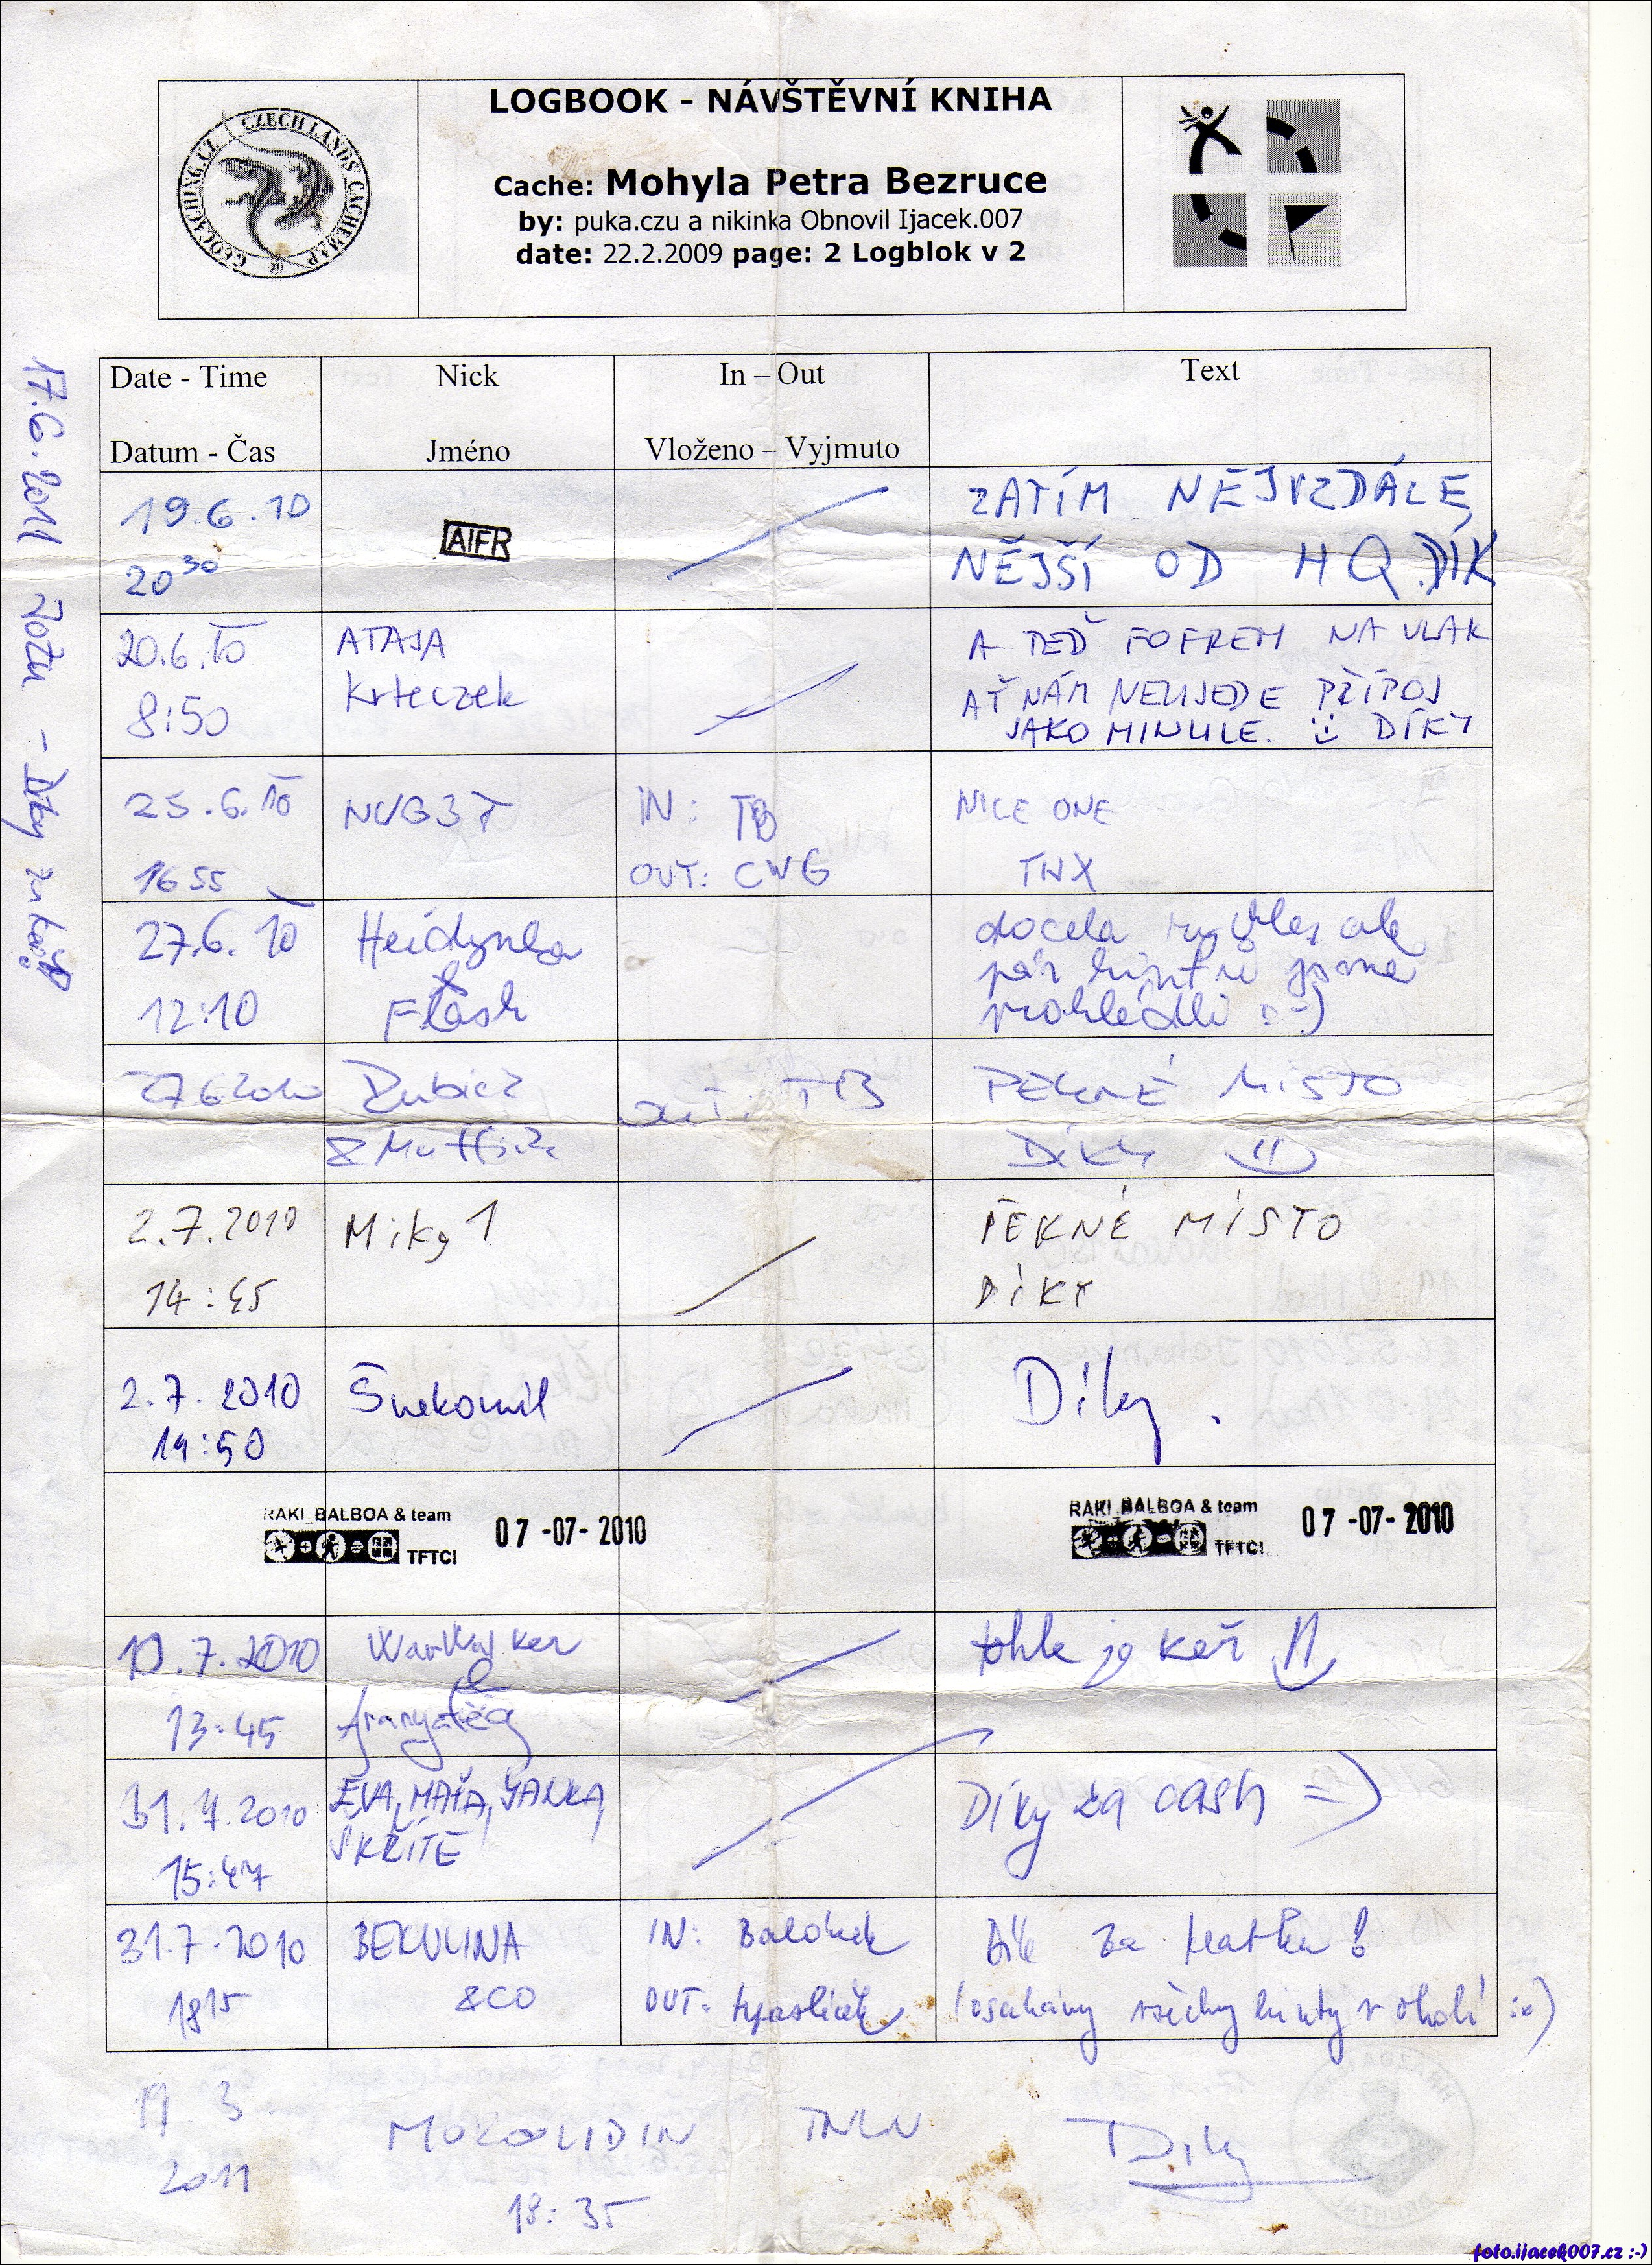 LOGBOOK - NÁVŠTĚVNÍ KNIHA
GEOCACHING.CZ CZECH LANDS' CACHEMAP
Cache: Mohyla Petra Bezruce
by: puka.czu a nikinka Obnovil Ijacek.007
date: 22.2.2009 page: 2 Logblok v 2
Date - Time Nick In – Out Text
Datum - Čas Jméno Vloženo – Vyjmuto
19.6.10 AIFR ZATÍM NEJVZDÁLE
20 30 NĚJŠÍ OD HQ. DÍK
20.6.10 ATAJA A TEĎ FOFREM NA VLAK
8:50 Krteczek AŤ NÁM NEUJEDE PŘÍPOJ
JAKO MINULE. :) DÍKY
25.6.10 NUB3T IN: TB NICE ONE
16 55 OUT: CWG TNX
27.6.10 Heidynka docela rychle, ale
& pár hintů jsme
12:10 Flash prohlédli :-)
27 6 2010 OUT: TB PEKNÉ MíSTO
DíKY :)
2.7.2010 Miky 1 PĚKNÉ MÍSTO
14:45 DÍKY
2.7.2010 Šnekomil Díky.
14:50
RAKI_BALBOA & team 07-07-2010 RAKI_BALBOA & team 07-07-2010
TFTC! TFTC!
10.7.2010 WarWalker tohle je keř :)
&
13:45
31.7.2010 EVA, MAŤA, JANKA, Díky za cash =)
15:47 ŠKŘÍTĚ
31.7.2010 BEKULINA IN: Balónek Dík za !
18 15 &CO OUT: (osahány všechny hinty v okolí :o)
19. 3. MOROLIDIN TNLN Díky
2011
18:35
17.6.2011 - Díky za keš!
foto.ijacek007.cz :-)